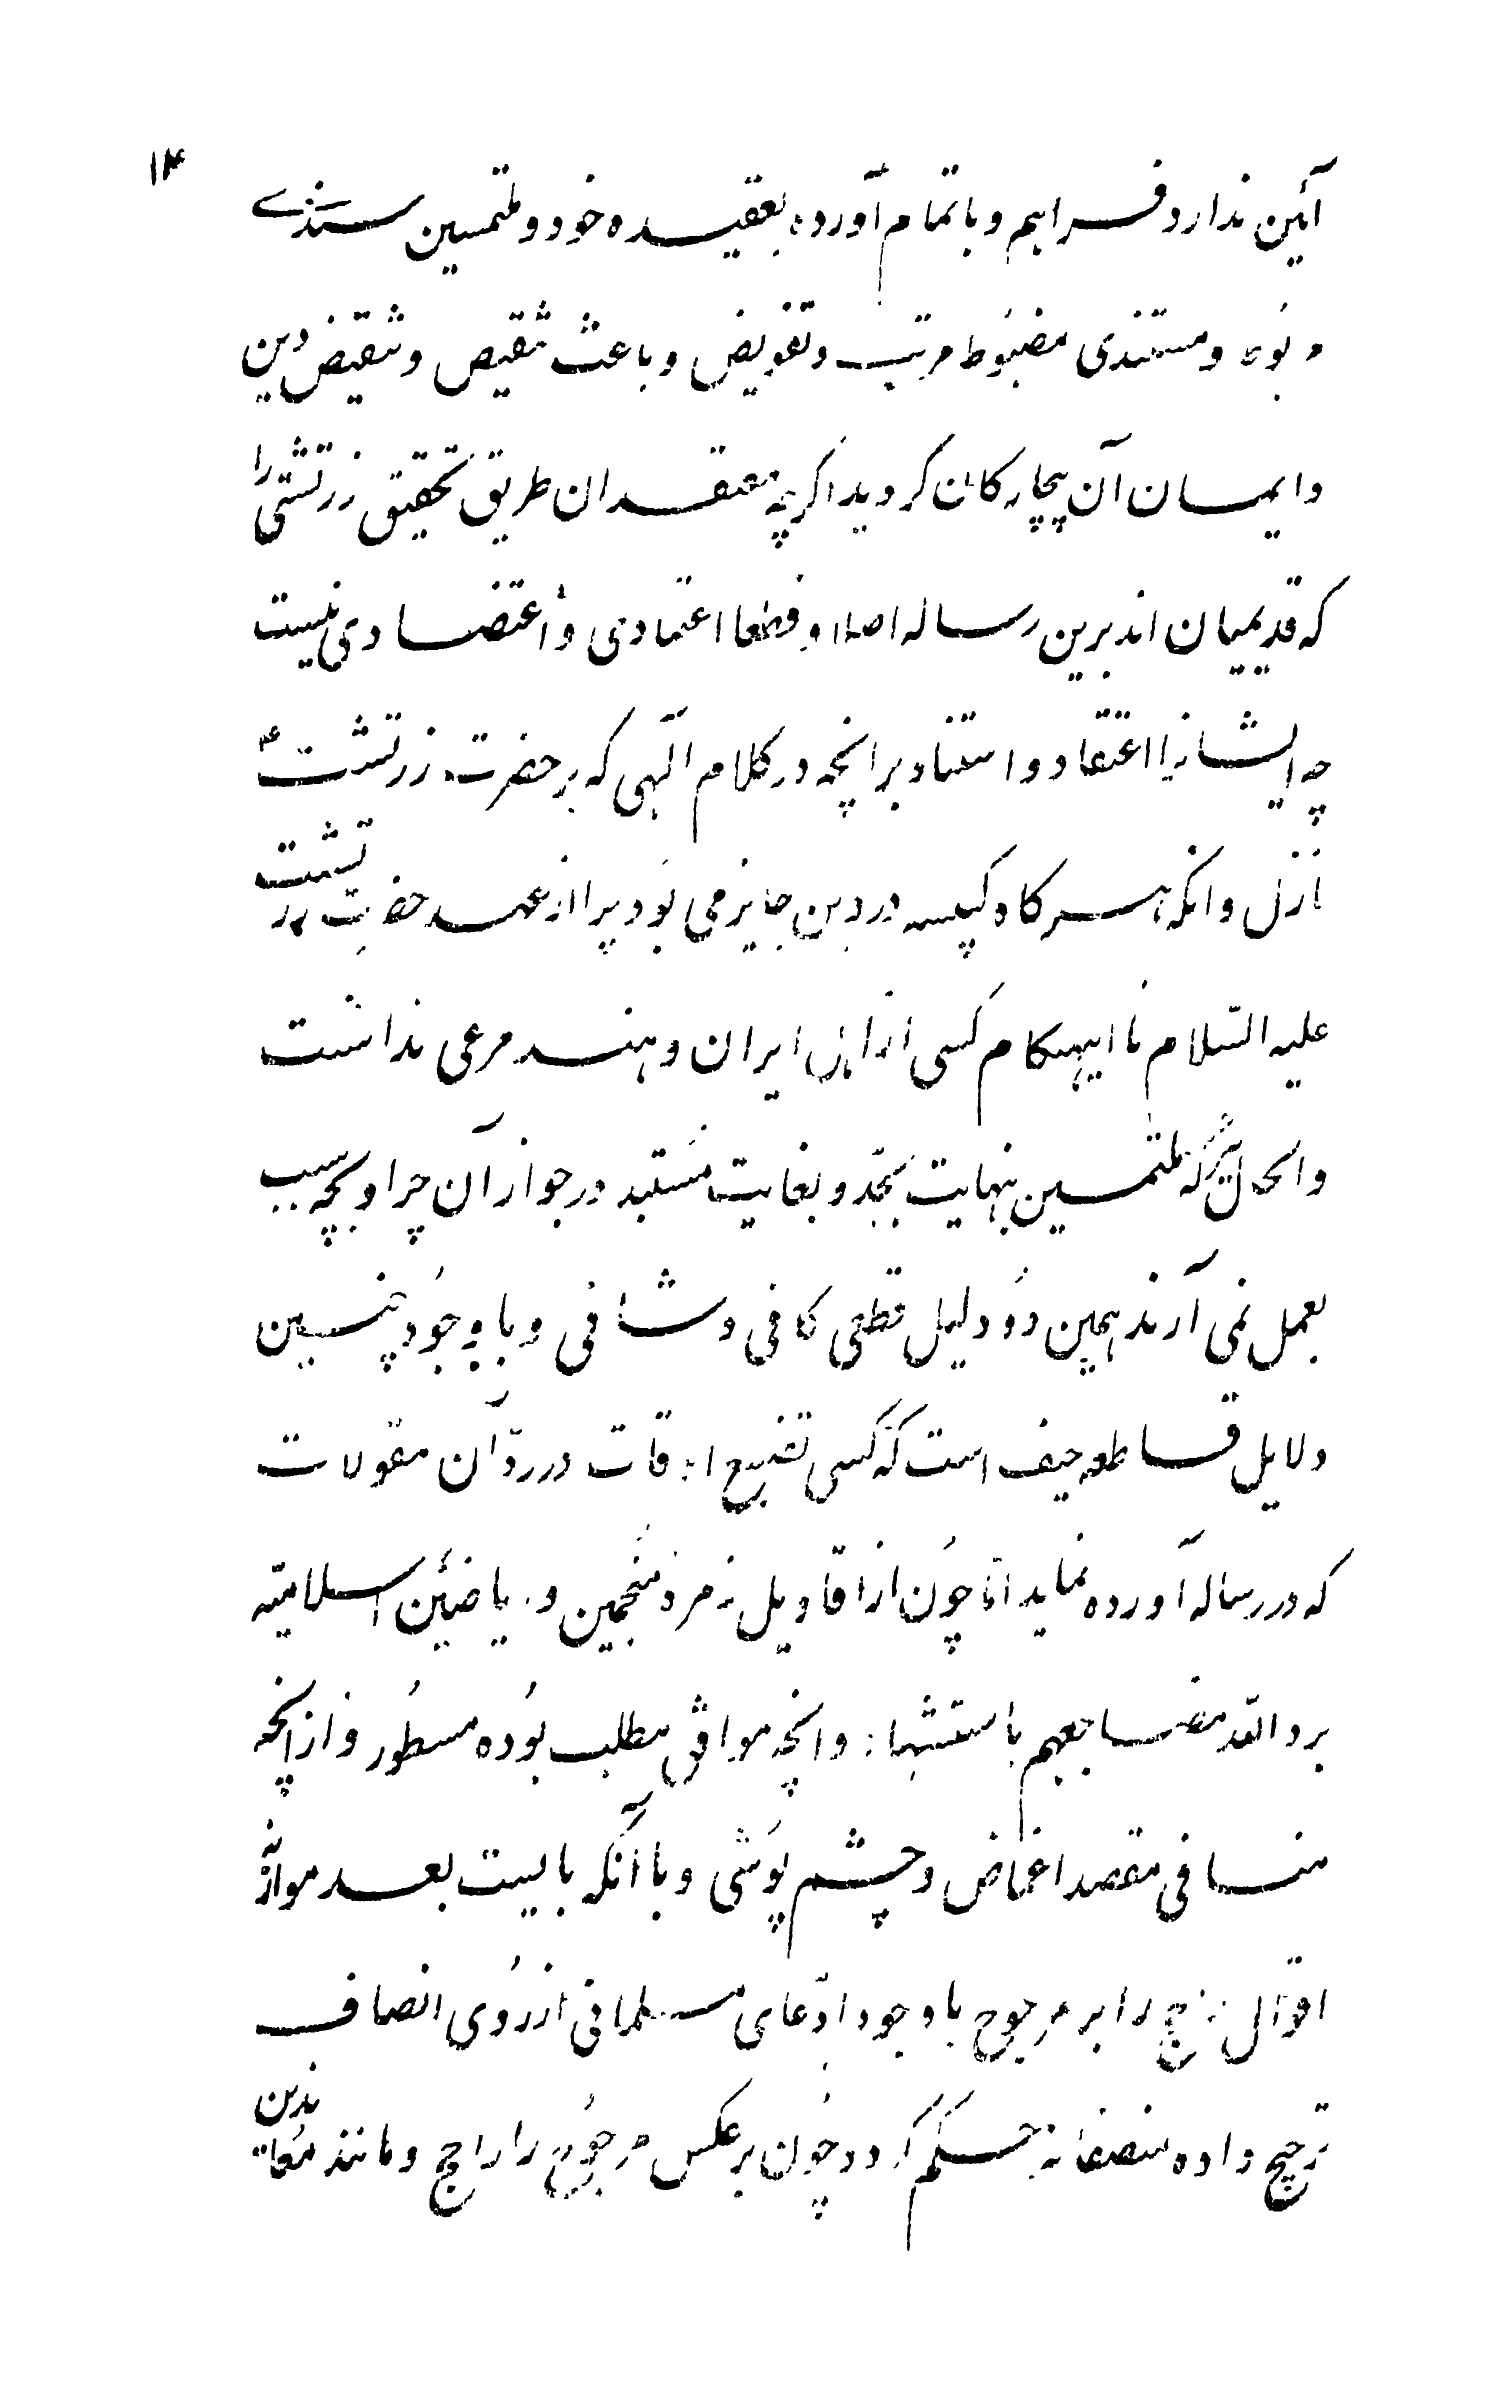 ۱۴
آئین ندارد فراهم و باتمام آورده بعقیده خود و ملتمسین سندے
مربوط و مستندی مضبُوط مرتب و تفویض و باعث تنقیص و تنقیض دین
و ایمان آن بیچارکان کردید اکرچه معتقدان طریق تحقیق زرتشتی را
که قدیمیان اند برین رساله اصلا و قطعا اعتمادی و اعتضادی نیست
چه ایشانرا اعتقاد و استناد برانچه در کلام الٓهی که بر حضرت زرتشت ع
نازل و انکه هرکاه کبیسه در دین جایز می بُود چرا از عهد حضرت زرتشت
علیه السّلام تا اینهنکام کَسی از اهل ایران و هند مرعی نداشت
و الحال نیز که ملتمسین نهایت بجّد و بغایت مُستبد در جواز آن چرا و بچه سبب
بعمل نمی آرند همین دُو دلیل قطعی کافی و شافی و با وجُود چنین
دلایل قاطعه حیف است که کَسی تضییع اوقات در ردّ آن مقولات
که در رساله آورده نماید امّا چُون از اقاویل زمرهٔ منجمین و ریاضیّین اسلامیّه
برد اللّه مضاجعهم باستشهاد و انچه موافق مطلب بُوده مسطُور و از انچه
منافی مقصد اغماض و چشم پُوشی و با آنکه بایست بعد موازنهٔ
اقوال راجح را بر مرجوح باوجود ادّعای مسلمانی از رُوی انصاف
ترجیح داده منصفانه حکم کردد چُون برعکس مرجُوح را راجح و مانند مُعاندین